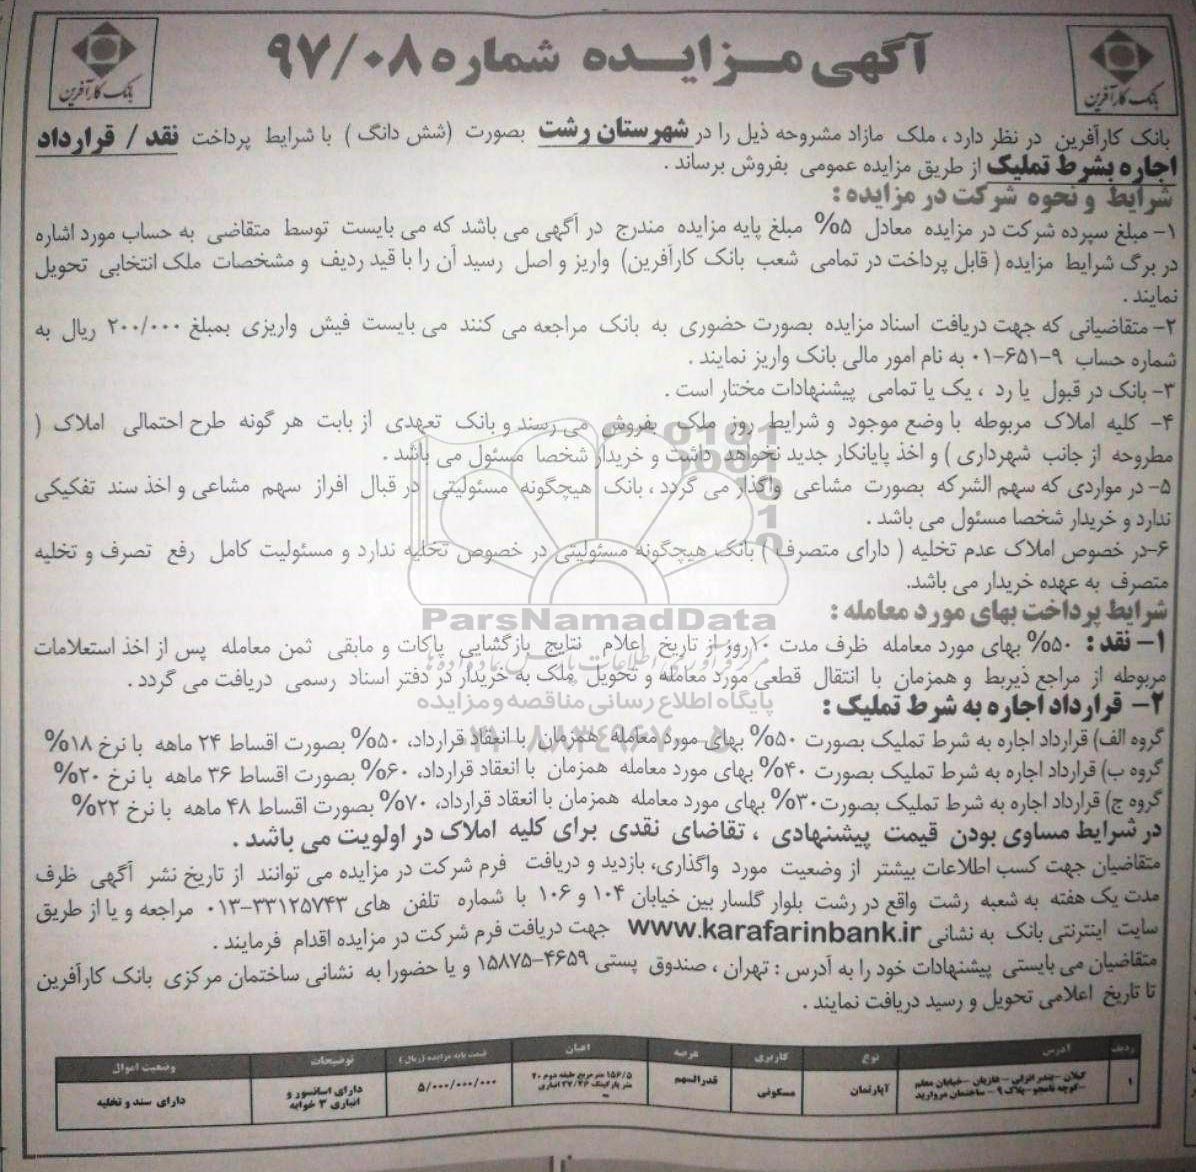 آگهی مزایده شماره ۹۷/۰۸
بانک کارآفرین
بانک کارآفرین
بانک کارآفرین در نظر دارد ، ملک مازاد مشروحه ذیل را در شهرستان رشت بصورت (شش دانگ ) با شرایط پرداخت نقد / قرارداد
اجاره بشرط تملیک از طریق مزایده عمومی بفروش برساند .
شرایط و نحوه شرکت در مزایده :
۱- مبلغ سپرده شرکت در مزایده معادل ۵% مبلغ پایه مزایده مندرج در آگهی می باشد که می بایست توسط متقاضی به حساب مورد اشاره
در برگ شرایط مزایده ( قابل پرداخت در تمامی شعب بانک کارآفرین) واریز و اصل رسید آن را با قید ردیف و مشخصات ملک انتخابی تحویل
نمایند .
۲- متقاضیانی که جهت دریافت اسناد مزایده بصورت حضوری به بانک مراجعه می کنند می بایست فیش واریزی بمبلغ ۲۰۰/۰۰۰ ریال به
شماره حساب ۹-۶۵۱-۰۱ به نام امور مالی بانک واریز نمایند .
۳- بانک در قبول یا رد ، یک یا تمامی پیشنهادات مختار است .
۴- کلیه املاک مربوطه با وضع موجود و شرایط روز ملک بفروش می رسند و بانک تعهدی از بابت هر گونه طرح احتمالی املاک (
مطروحه از جانب شهرداری ) و اخذ پایانکار جدید نخواهد داشت و خریدار شخصا مسئول می باشد .
۵- در مواردی که سهم الشرکه بصورت مشاعی واگذار می گردد ، بانک هیچگونه مسئولیتی در قبال افراز سهم مشاعی و اخذ سند تفکیکی
ندارد و خریدار شخصا مسئول می باشد .
۶-در خصوص املاک عدم تخلیه ( دارای متصرف ) بانک هیچگونه مسئولیتی در خصوص تخلیه ندارد و مسئولیت کامل رفع تصرف و تخلیه
متصرف به عهده خریدار می باشد.
ParsNamadData
شرایط پرداخت بهای مورد معامله :
۱- نقد : ۵۰% بهای مورد معامله ظرف مدت ۱۰ روز از تاریخ اعلام نتایج بازگشایی پاکات و مابقی ثمن معامله پس از اخذ استعلامات
مربوطه از مراجع ذیربط و همزمان با انتقال قطعی مورد معامله و تحویل ملک به خریدار در دفتر اسناد رسمی دریافت می گردد .
پایگاه اطلاع رسانی مناقصه و مزایده
۲- قرارداد اجاره به شرط تملیک :
گروه الف) قرارداد اجاره به شرط تملیک بصورت ۵۰% بهای مورد معامله همزمان با انعقاد قرارداد، ۵۰% بصورت اقساط ۲۴ ماهه با نرخ ۱۸%
گروه ب) قرارداد اجاره به شرط تملیک بصورت ۴۰% بهای مورد معامله همزمان با انعقاد قرارداد، ۶۰% بصورت اقساط ۳۶ ماهه با نرخ ۲۰%
گروه ج) قرارداد اجاره به شرط تملیک بصورت۳۰% بهای مورد معامله همزمان با انعقاد قرارداد، ۷۰% بصورت اقساط ۴۸ ماهه با نرخ ۲۲%
در شرایط مساوی بودن قیمت پیشنهادی ، تقاضای نقدی برای کلیه املاک در اولویت می باشد .
متقاضیان جهت کسب اطلاعات بیشتر از وضعیت مورد واگذاری، بازدید و دریافت فرم شرکت در مزایده می توانند از تاریخ نشر آگهی ظرف
مدت یک هفته به شعبه رشت واقع در رشت بلوار گلسار بین خیابان ۱۰۴ و ۱۰۶ با شماره تلفن های ۳۳۱۲۵۷۴۳-۰۱۳ مراجعه و یا از طریق
سایت اینترنتی بانک به نشانی www.karafarinbank.ir جهت دریافت فرم شرکت در مزایده اقدام فرمایند .
متقاضیان می بایستی پیشنهادات خود را به آدرس : تهران ، صندوق پستی ۴۶۵۹-۱۵۸۷۵ و یا حضورا به نشانی ساختمان مرکزی بانک کارآفرین
تا تاریخ اعلامی تحویل و رسید دریافت نمایند .
ردیف آدرس نوع کاربری عرصه اعیان قیمت پایه مزایده (ریال) توضیحات وضعیت اموال
۱ گیلان -بندر انزلی - غازیان -خیابان معلم آپارتمان مسکونی قدرالسهم ۱۵۶/۵ متر مربع طبقه دوم ۲۰ ۵/۰۰۰/۰۰۰/۰۰۰ دارای اسانسور و دارای سند و تخلیه
-کوچه -پلاک ۹ - ساختمان مروارید متر پارکینگ ۲۷/۲۶ انباری انباری ۳ خوابه